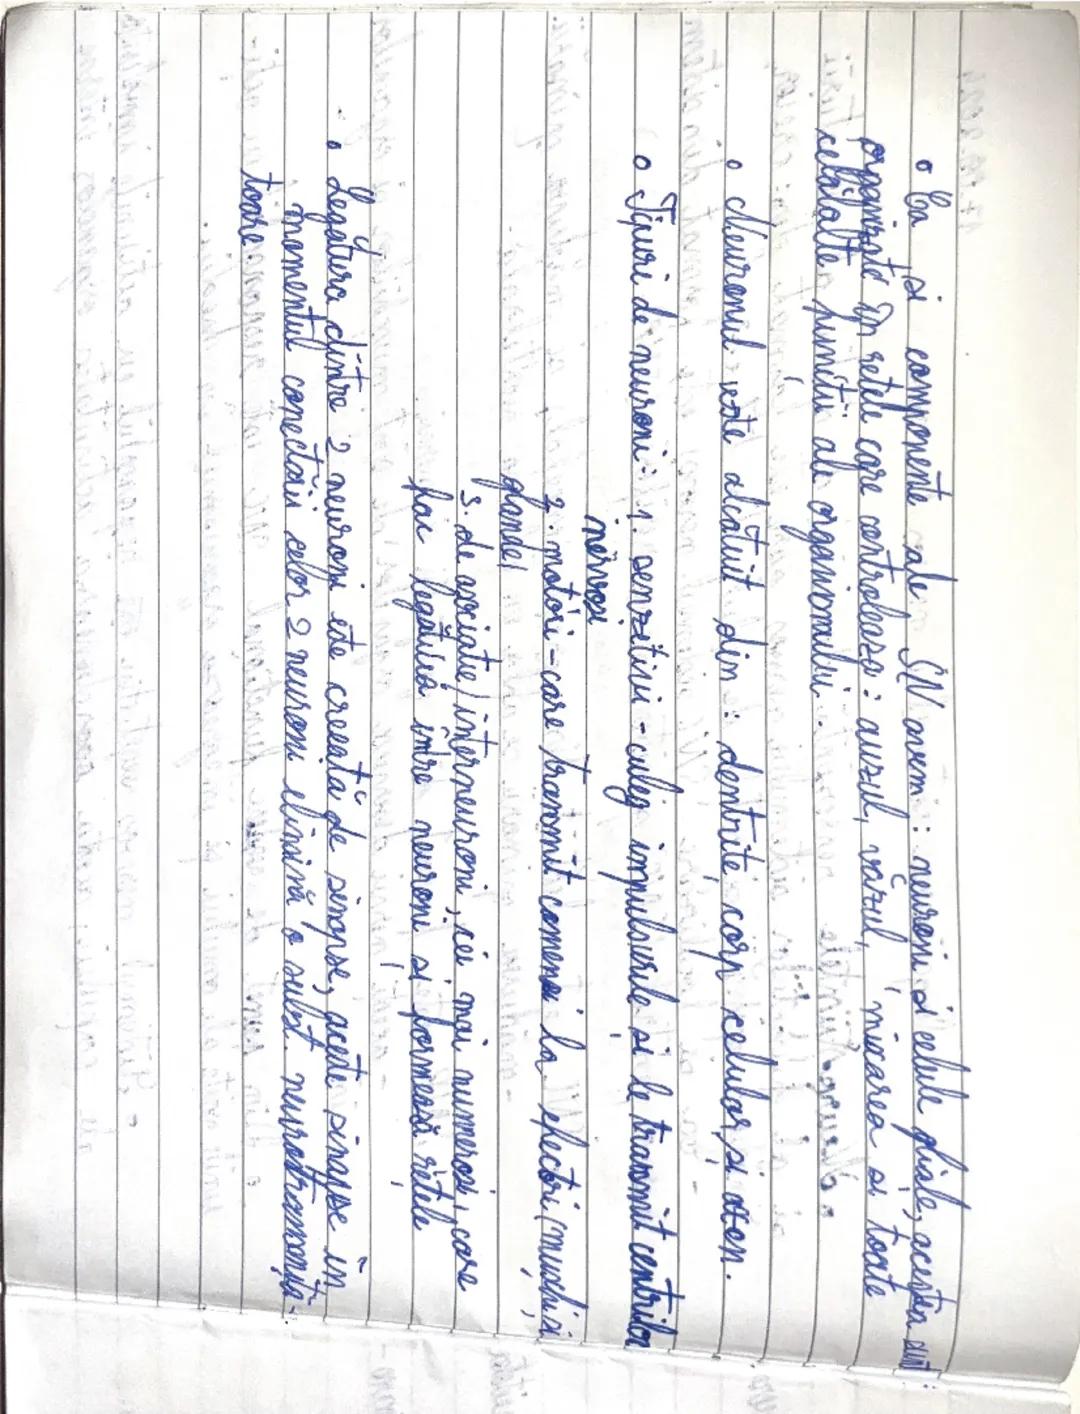 • Ca și componente ale SN avem: neuroni și celule gliale, aceștia sunt
organizate în rețele care controlează: auzul, văzul, mișcarea și toate
celelalte funcții ale organismului.
• Neuronul este alcătuit din: dentrite, corp celular, și axon.
• Tipuri de neuroni: 1. senzitivi - culeg impulsurile și le transmit centrilor
nervoși
2. motori - care transmit comenzi la efectori (mușchi și
glande)
3. de asociație/interneuroni, cei mai numeroși, care
fac legătură între neuroni și formează rețele
• Legătura dintre 2 neuroni este creeată de sinapse, aceste sinapse în
momentul conectării celor 2 neuroni elimină o subst. neurotransmiță-
toare.